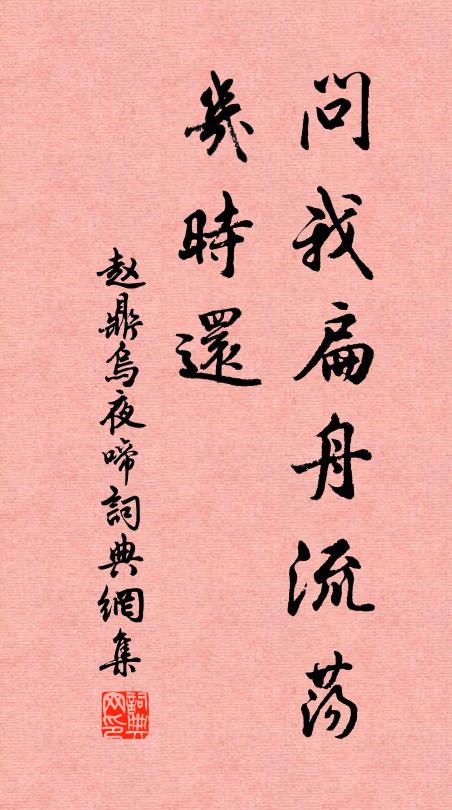 問我扁舟流荡
幾時還
赵鼎烏夜啼詞典網集
詞典网印